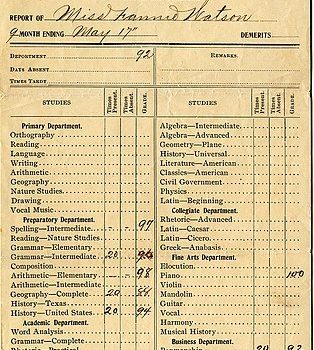 REPORT OF Miss Fannie Watson
9 MONTH ENDING May 17" DEMERITS
DEPORTMENT 92 REMARKS.
DAYS ABSENT
TIMES TARDY
STUDIES Times Present. Times Absent. GRADE. STUDIES Times Present. Times Absent. GRADE.
Primary Department.
Orthography
Reading
Language
Writing
Arithmetic
Geography
Nature Studies
Drawing
Vocal Music
Preparatory Department.
Spelling—Intermediate 97
Reading—Nature Studies
Grammar—Elementary
Grammar—Intermediate 20
Composition
Arithmetic—Elementary 98
Arithmetic—Intermediate
Geography—Complete 20 84
History—Texas
History—United States 20 94
Academic Department.
Algebra—Intermediate
Algebra—Advanced
Geometry—Plane
History—Universal
Literature—American
Classics—American
Civil Government
Physics
Latin—Beginning
Collegiate Department.
Rhetoric—Advanced
Latin—Caesar
Latin—Cicero
Greek—Anabasis
Fine Arts Department.
Elocution
Piano 100
Violin
Mandolin
Guitar
Vocal
Harmony
Musical History
Business Department.
Penmanship 20 92